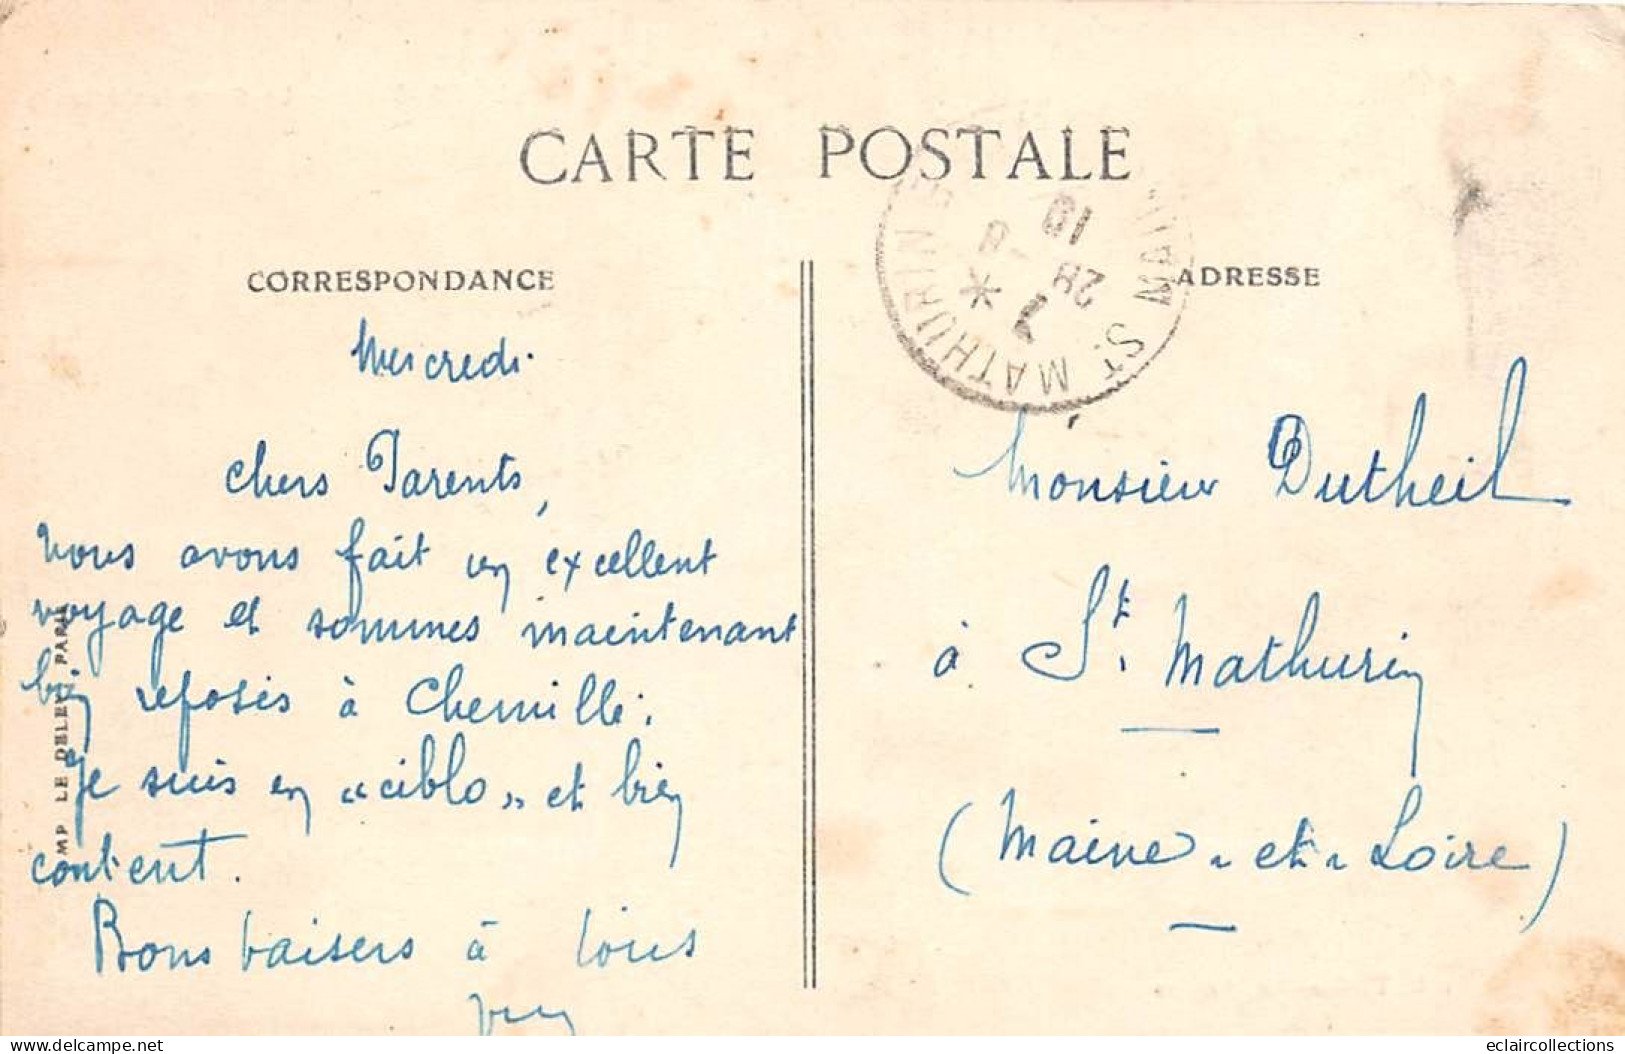 CARTE POSTALE
CORRESPONDANCE
Mercredi.
Chers Parents,
Nous avons fait un excellent
voyage et sommes maintenant
bien reposés à Chemillé.
Je suis en "ciblo" et bien
content.
Bons baisers à tous
IMP LE DELEY PARIS
ADRESSE
ST MATHURIN MAINE
7 *
28 - 8
10
Monsieur Dutheil
à St. Mathurin
(Maine-et-Loire)
www.delcampe.net
eclaircollections